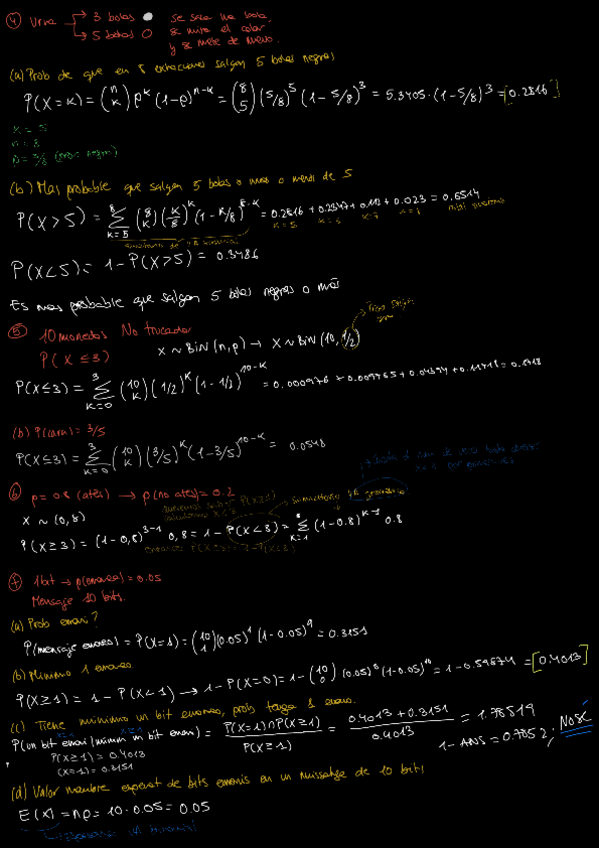 ④ Urna → 3 bolas ●
→ 5 bolas O
se saca una bola,
se mira el color
y se mete de nuevo.
(a) Prob de que en 8 extracciones salgan 5 bolas negras
P(X=k) = (n k) p^k (1-p)^n-k = (8 5) (5/8)^5 (1-5/8)^3 = 5.3405·(1-5/8)^3 = [0.2816]
k = 5
n = 8
(b) Mas probable que salgan 5 bolas o mas o menos de 5
P(X>5) = Σ 8 k=5 (8 k) (k/8)^k (1-k/8)^8-k = 0.2816 + 0.2347 + 0.112 + 0.023 = 0.6514
k=5 k=6 k=7 k=8
P(X<5) = 1 - P(X>5) = 0.3486
Es mas probable que salgan 5 bolas negras o más
⑤ 10 monedas No trucadas
P(X ≤ 3) X ~ BiN(n,p) → X ~ BiN(10, 1/2)
P(X≤3) = Σ 3 k=0 (10 k) (1/2)^k (1-1/2)^10-k = 0.000976 + 0.009765 + 0.04394 + 0.11718 = 0.1718
(b) P(cara) = 3/5
P(X≤3) = Σ 3 k=0 (10 k) (3/5)^k (1-3/5)^10-k = 0.0548
⑥ p = 0.8 (atès) → p(no atès) = 0.2
X ~ (0,8)
P(X≥3) = (1-0,8)^3-1 0,8 = 1 - P(X<3) = Σ k=1 (1-0.8)^k-1 0.8
⑦ 1 bit → p(erroneo) = 0.05
Mensaje 10 bits.
(a) Prob erroni?
P(mensaje erroneo) = P(X=1) = (10 1) (0.05)^1 (1-0.05)^9 = 0.3151
(b) Minimo 1 erroneo
P(X≥1) = 1 - P(X<1) → 1 - P(X=0) = 1 - (10 0) (0.05)^0 (1-0.05)^10 = 1 - 0.59874 = [0.4013]
(c) Tiene minimo un bit erroneo, prob tenga 1 erroneo.
P(un bit erroni / minim un bit erroni) = P(X=1)∩P(X≥1) / P(X≥1) = 0.4013 + 0.3151 / 0.4013 = 1.78519
P(X≥1) = 0.4013
(X=1) = 0.3151
1 - ANS = 0.7852; NOSÉ
(d) Valor nombre esperat de bits erronis en un missatge de 10 bits
E(X) = np = 10·0.05 = 0.05